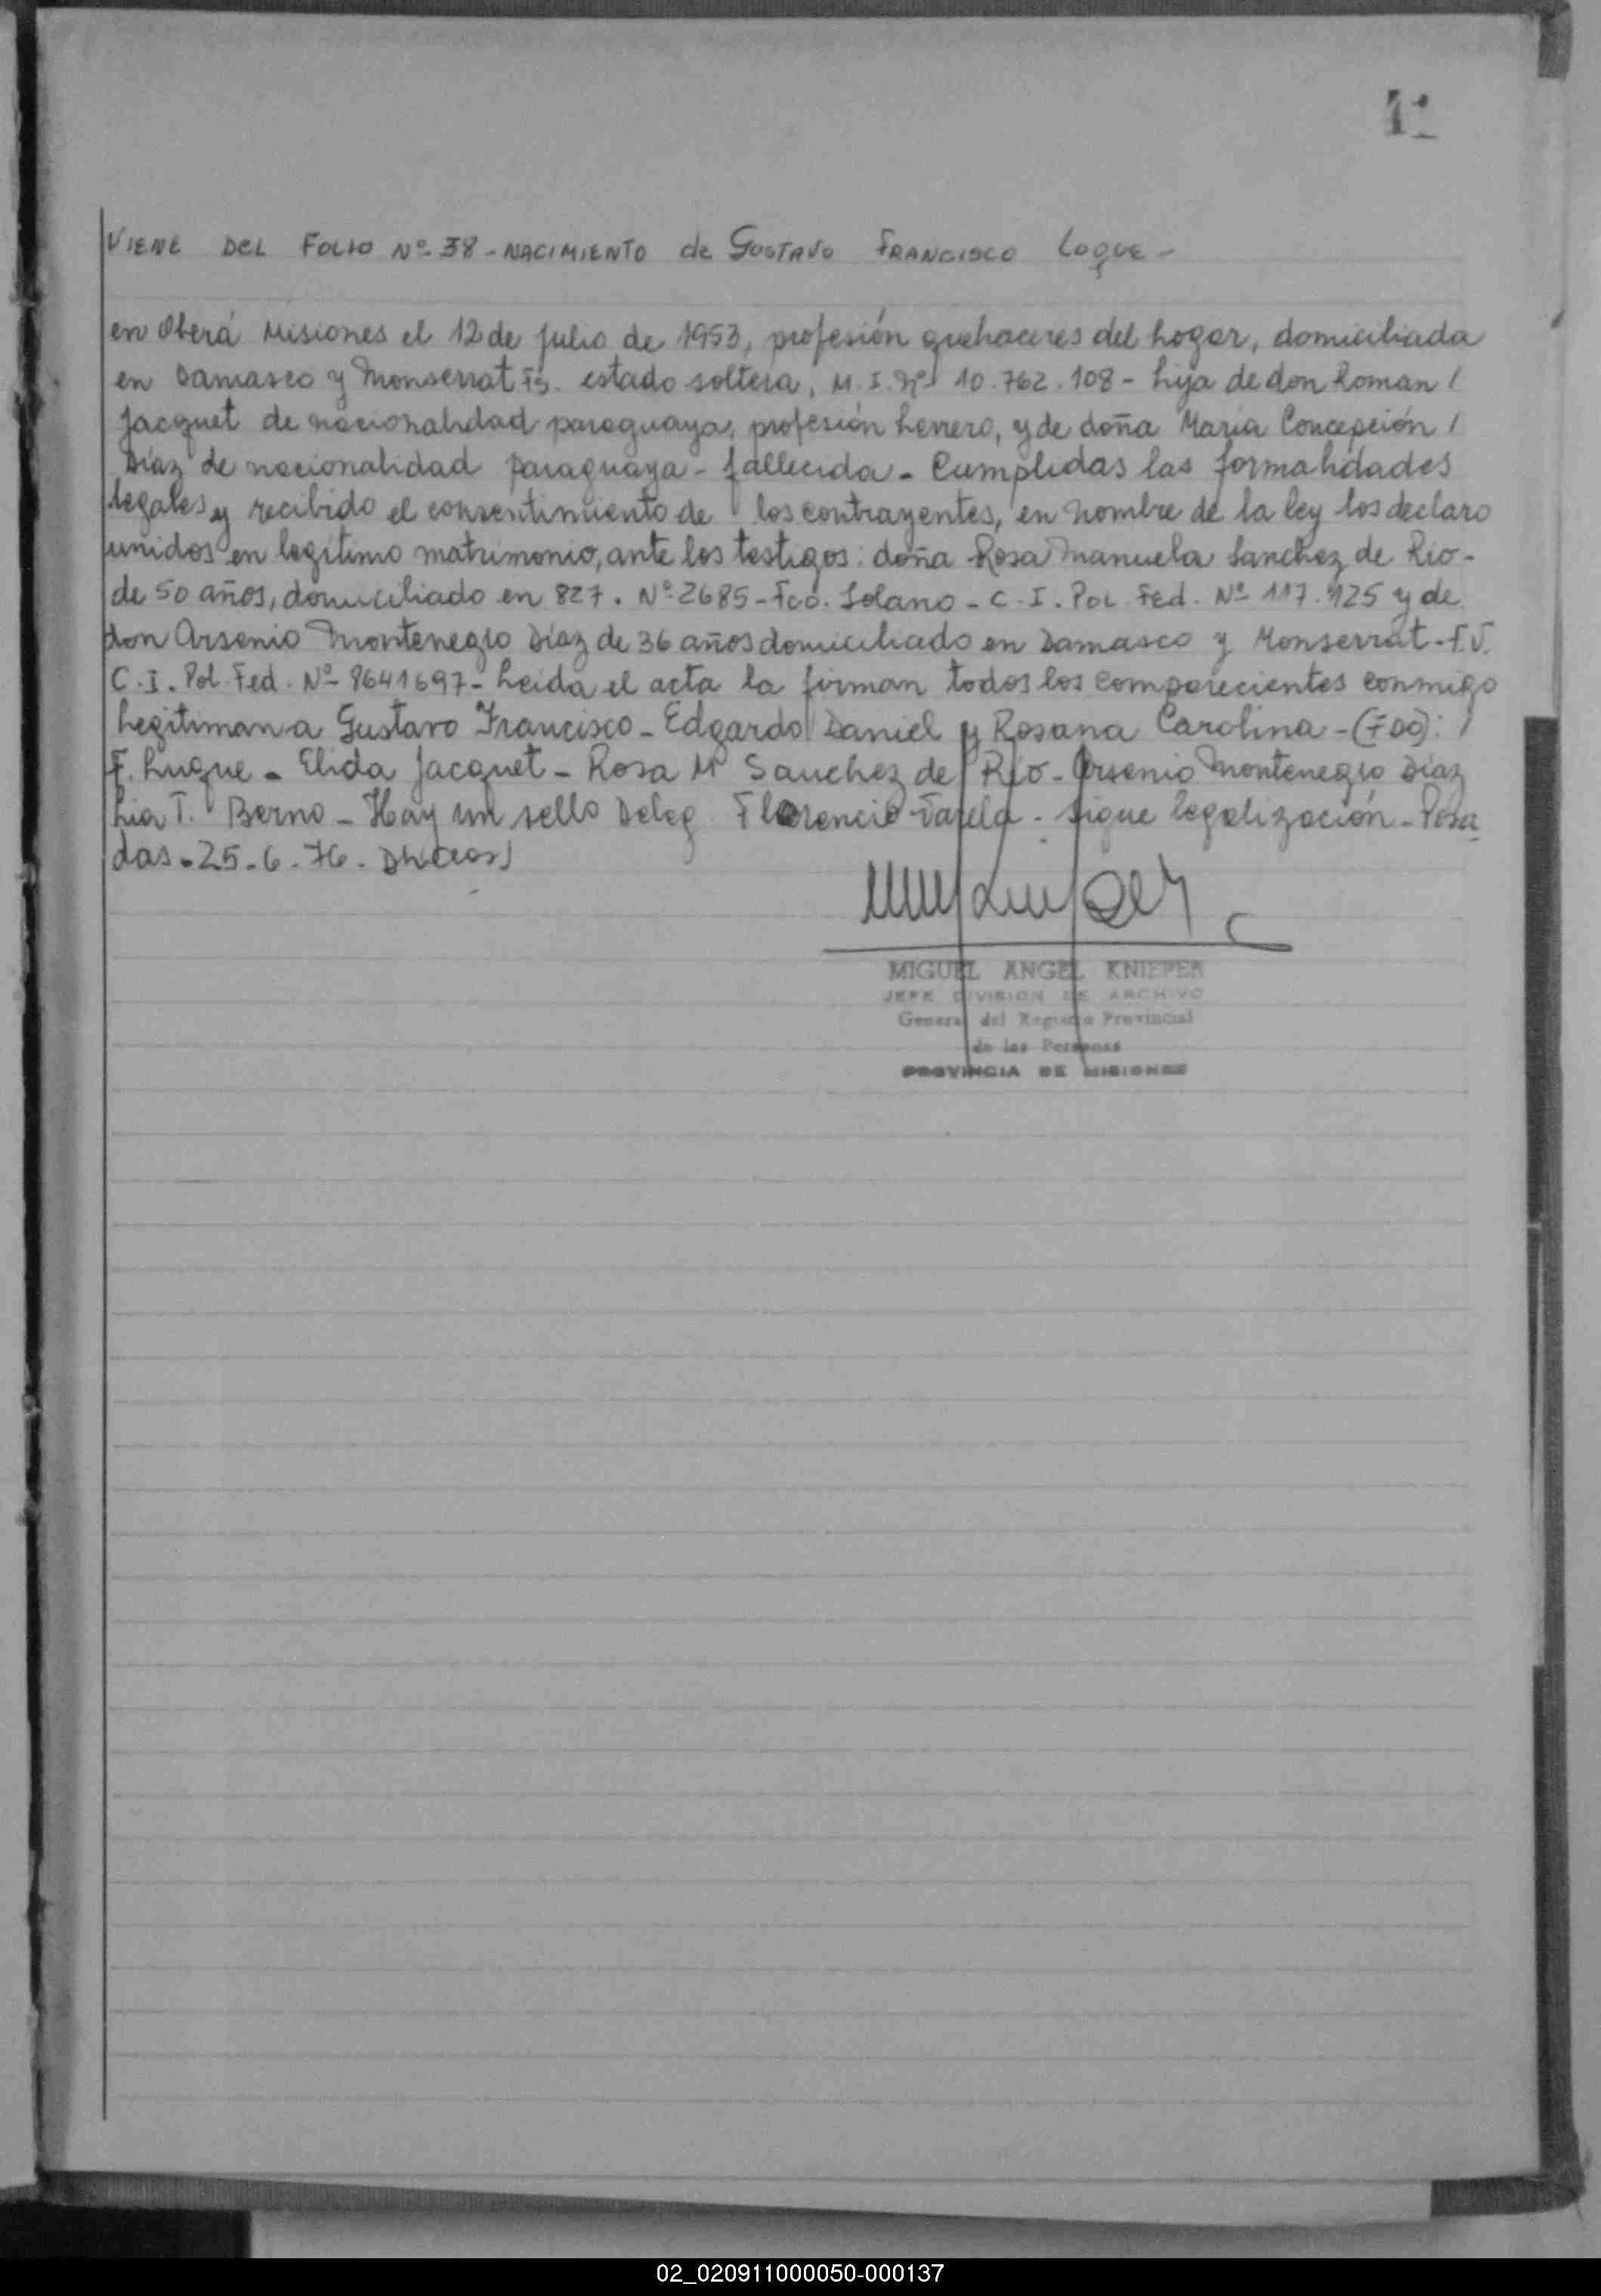 VIENE DEL FOLIO Nº 38 - NACIMIENTO de GUSTAVO FRANCISCO LUQUE -
en Oberá Misiones el 12 de julio de 1953, profesión quehaceres del hogar, domiciliada
en Damasco y Monserrat estado soltera, M. I. Nº 10.762.108 - hija de don Roman /
Jacquet de nacionalidad paraguaya, profesión herrero, y de doña María Concepción /
Díaz de nacionalidad paraguaya - fallecida - Cumplidas las formalidades
legales y recibido el consentimiento de los contrayentes, en nombre de la ley los declaro
unidos en legítimo matrimonio, ante los testigos: doña Rosa Manuela Sanchez de Rio -
de 50 años, domiciliado en 827. Nº 2685 - Fco. Solano - C. I. Pol. Fed. Nº 117.925 y de
don Arsenio Montenegro Díaz de 36 años domiciliado en Damasco y Monserrat - F.V.
C. I. Pol. Fed. Nº 8641697 - Leida el acta la firman todos los comparecientes conmigo
Legitiman a Gustavo Francisco - Edgardo Daniel y Rosana Carolina - (FDO): /
F. Luque - Elida Jacquet - Rosa M Sanchez de Rio - Arsenio Montenegro Díaz
Lia T. Berno - Hay un sello Deleg. Florencio Varela - Sigue legalización - Posa
das - 25 - 6 - 76 -
MIGUEL ANGEL KNIEPER
JEFE DIVISION DE ARCHIVO
General del Registro Provincial
de las Personas
PROVINCIA DE MISIONES
02_020911000050-000137